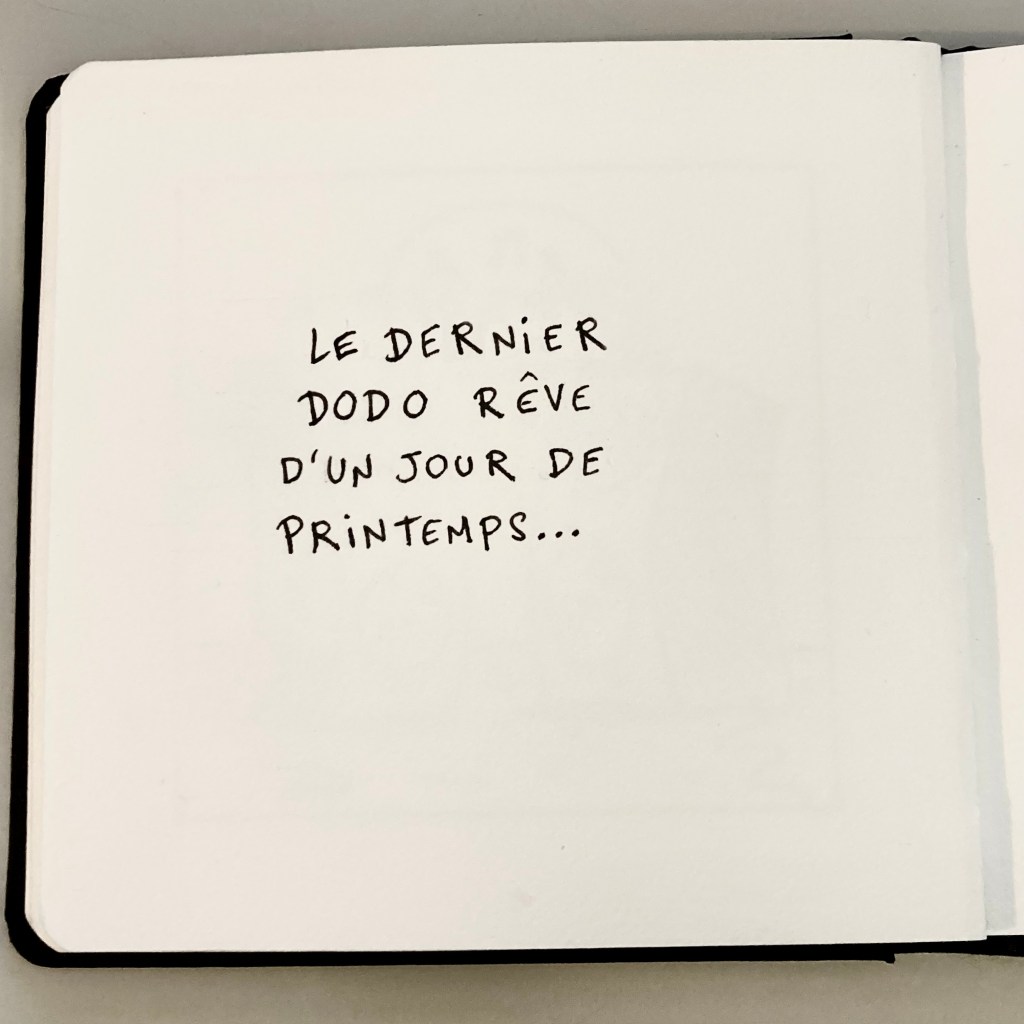 LE DERNIER
DODO RÊVE
D'UN JOUR DE
PRINTEMPS...